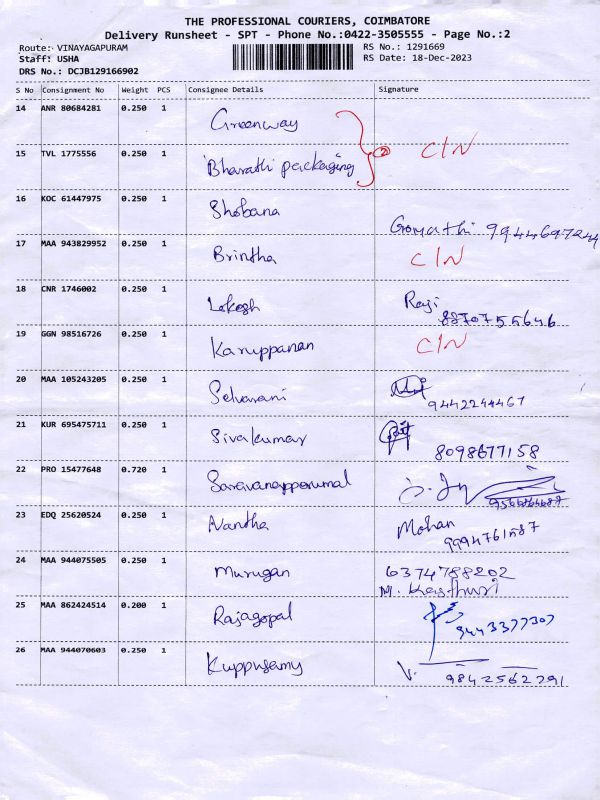 THE PROFESSIONAL COURIERS, COIMBATORE
Delivery Runsheet - SPT - Phone No.:0422-3505555 - Page No.:2
Route: VINAYAGAPURAM RS No.: 1291669
Staff: USHA RS Date: 18-Dec-2023
DRS No.: DCJB129166902
S No Consignment No Weight PCS Consignee Details Signature
14 ANR 80684281 0.250 1 Greenway
15 TVL 1775556 0.250 1 Bharathi packaging 2 C/N
16 KOC 61447975 0.250 1 Shobana Gomathi 9944697244
17 MAA 943829952 0.250 1 Brintha C/N
18 CNR 1746002 0.250 1 Lokesh Raji
8870755646
19 GGN 98516726 0.250 1 Karuppanan C/N
20 MAA 105243205 0.250 1 Selvarani
9442244467
21 KUR 695475711 0.250 1 Sivakumar
8098677158
22 PRO 15477648 0.720 1 Saravanapperumal
23 EDQ 25620524 0.250 1 Nantha Mohan
9994761587
24 MAA 944075505 0.250 1 Murugan 6374788202
M. Kasthuri
25 MAA 862424514 0.200 1 Rajagopal
9443377307
26 MAA 944070603 0.250 1 Kuppusamy V.
9842562791